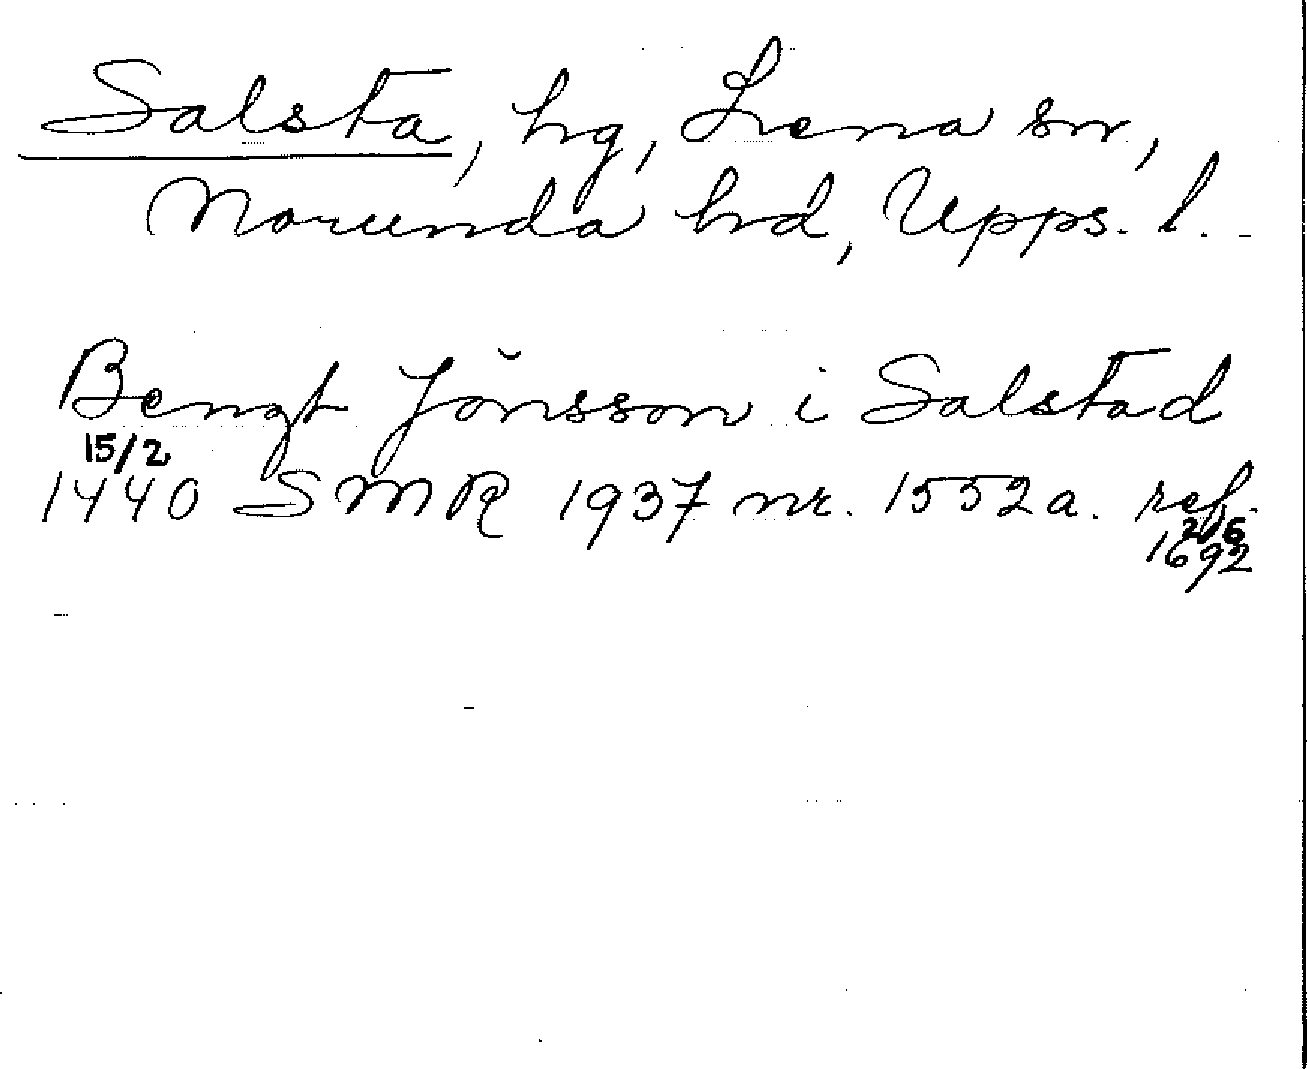 Salsta, hg, Lena sn,
Norunda hd, Upps. l.
Bengt Jönsson i Salstad
15/2
1440 SMR 1937 nr. 1552a. ref.
1692